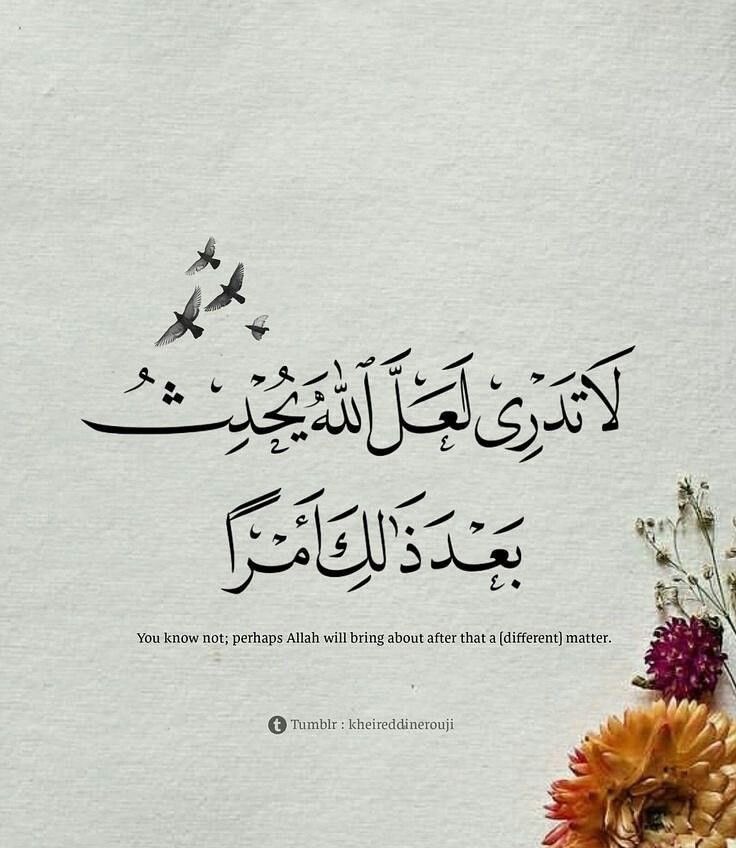 لَا تَدْرِى لَعَلَّ ٱللَّهَ يُحْدِثُ
بَعْدَ ذَٰلِكَ أَمْرًا
You know not; perhaps Allah will bring about after that a (different) matter.
t Tumblr : kheireddinerouji